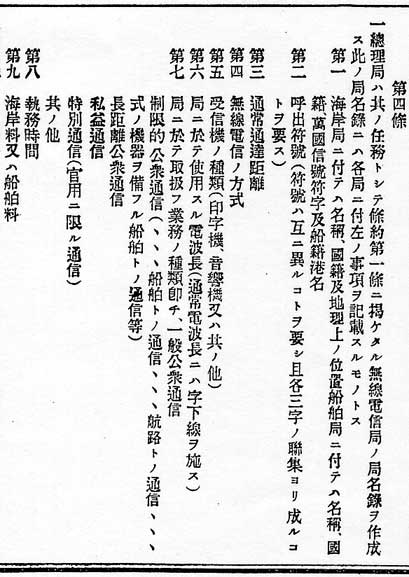 第四條
一總理局ハ其ノ任務トシテ條約第一條ニ揭ケタル無線電信局ノ局名錄ヲ作成
ス此ノ局名錄ニハ各局ニ付左ノ事項ヲ記載スルモノトス
第一　海岸局ニ付テハ名稱、國籍及地理上ノ位置船舶局ニ付テハ名稱、國
籍萬國信號符字及船籍港名
第二　呼出符號(符號ハ互ニ異ルコトヲ要シ且各三字ノ聯集ヨリ成ルコ
トヲ要ス)
第三　通常通達距離
第四　無線電信ノ方式
第五　受信機ノ種類(印字機、音響機又ハ其ノ他)
第六　局ニ於テ使用スル電波長(通常電波長ニハ字下線ヲ施ス)
第七　局ニ於テ取扱フ業務ノ種類卽チ、一般公衆通信
制限的公衆通信(、、、船舶トノ通信、、、航路トノ通信、、、
式ノ機器ヲ備フル船舶トノ通信等)
長距離公衆通信
私益通信
特別通信(官用ニ限ル通信)
其ノ他
第八　執務時間
第九　海岸料又ハ船舶料